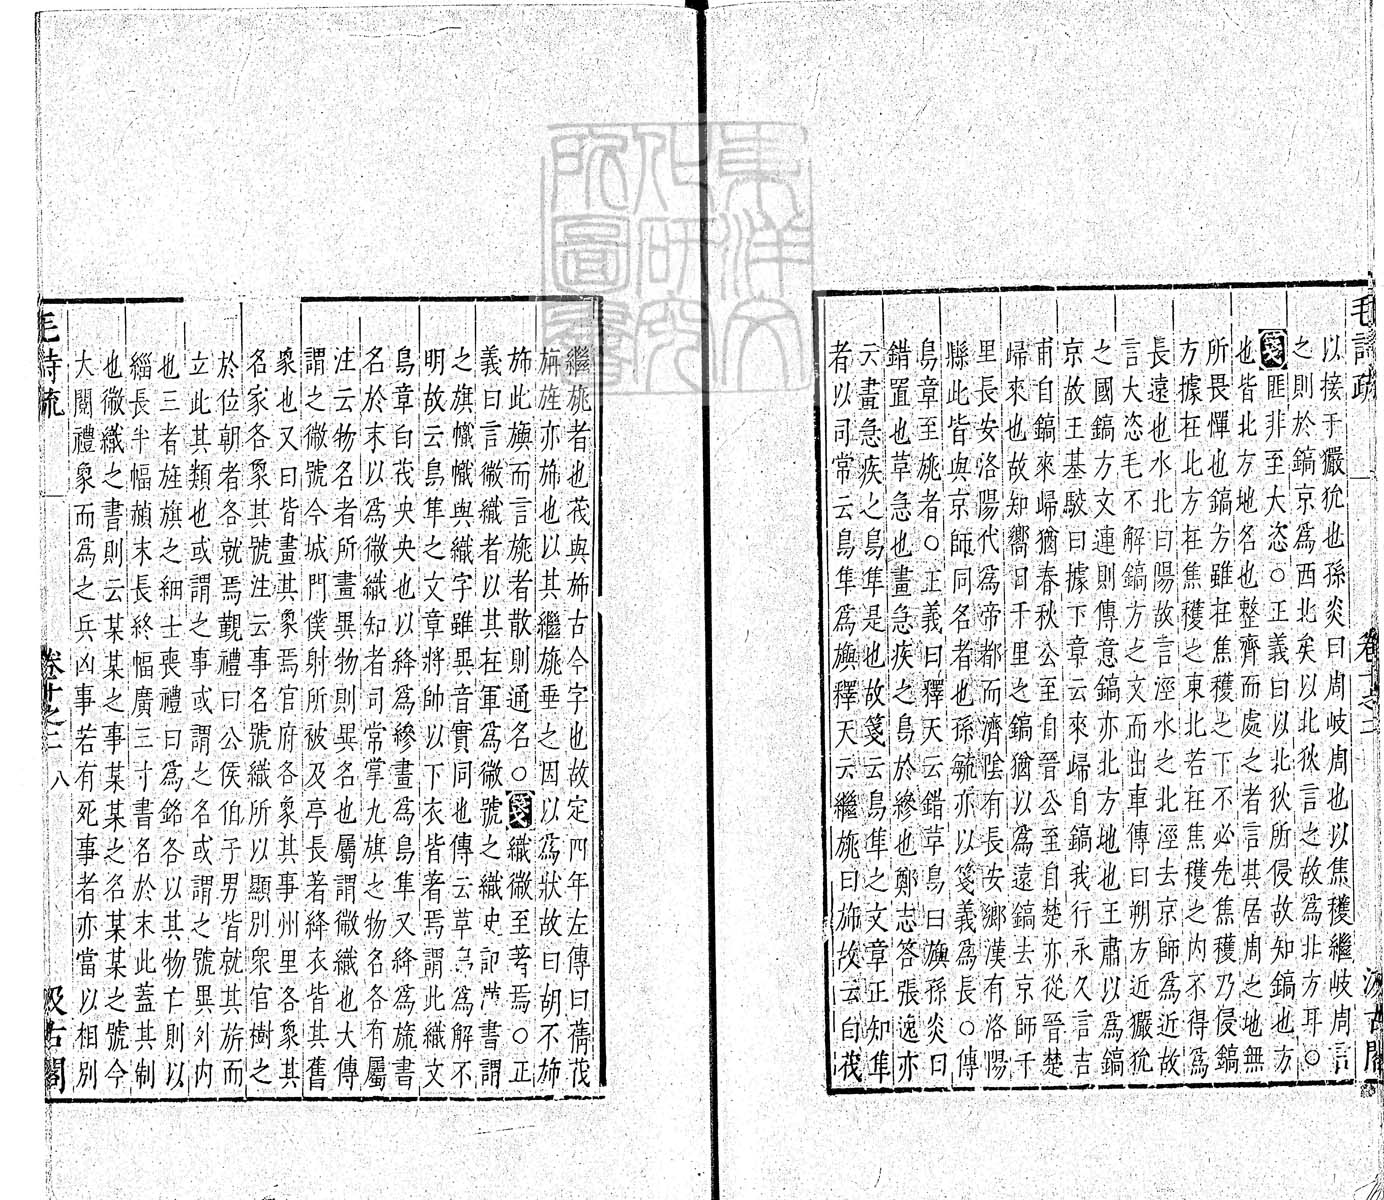 毛詩疏
卷十之二
汲古閣
以接于玁狁也孫炎曰周岐周也以焦穫繼岐周言
之則於鎬京為西北矣以北狄言之故為北方耳○
箋匪非至大恣○正義曰以北狄所侵故知鎬也方
也皆北方地名也整齊而處之者言其居周之地無
所畏憚也鎬方雖在焦穫之下不必先焦穫乃侵鎬
方據在北方在焦穫之東北若在焦穫之內不得為
長遠也水北曰陽故言涇水之北涇去京師為近故
言大恣毛不解鎬方之文而出車傳曰朔方近玁狁
之國鎬方文連則傳意鎬亦北方地也王肅以為鎬
京故王基駮曰據下章云來歸自鎬我行永久言吉
甫自鎬來歸猶春秋公至自晉公至自楚亦從晉楚
歸來也故知嚮曰千里之鎬猶以為遠鎬去京師千
里長安洛陽代為帝都而濟陰有長安鄉漢有洛陽
縣此皆與京師同名者也孫毓亦以箋義為長○傳
鳥章至旐者○正義曰釋天云錯革鳥曰旟孫炎曰
錯置也革急也畫急疾之鳥於縿也鄭志答張逸亦
云畫急疾之鳥隼是也故箋云鳥隼之文章正知隼
者以司常云鳥隼為旟釋天云繼旐曰旆故云白茷
繼旐者也茷與旆古今字也故定四年左傳曰蒨茷
旃旌亦旆也以其繼旐垂之因以為狀故曰胡不旆
旆此旟而言旐者散則通名○箋織徽至著焉○正
義曰言徽織者以其在軍為徽號之織史記漢書謂
之旗幟幟與織字雖異音實同也傳云革鳥為解不
明故云鳥隼之文章將帥以下衣皆著焉謂此織文
鳥章白茷央央也以絳為縿畫為鳥隼又絳為旒書
名於末以為徽織知者司常掌九旗之物名各有屬
注云物名者所畫異物則異名也屬謂徽織也大傳
謂之徽號今城門僕射所被及亭長著絳衣皆其舊
象也又曰皆畫其象焉官府各象其事州里各象其
名家各象其號注云事名號織所以顯別衆官樹之
於位朝者各就焉覲禮曰公侯伯子男皆就其旂而
立此其類也或謂之事或謂之名或謂之號異外內
也三者旌旗之細士喪禮曰為銘各以其物亡則以
緇長半幅赬末長終幅廣三寸書名於末此蓋其制
也徽織之書則云某某之事某某之名某某之號今
大閱禮象而為之兵凶事若有死事者亦當以相別
毛詩疏
卷十之二
八
汲古閣
東洋文
化研究
所圖書